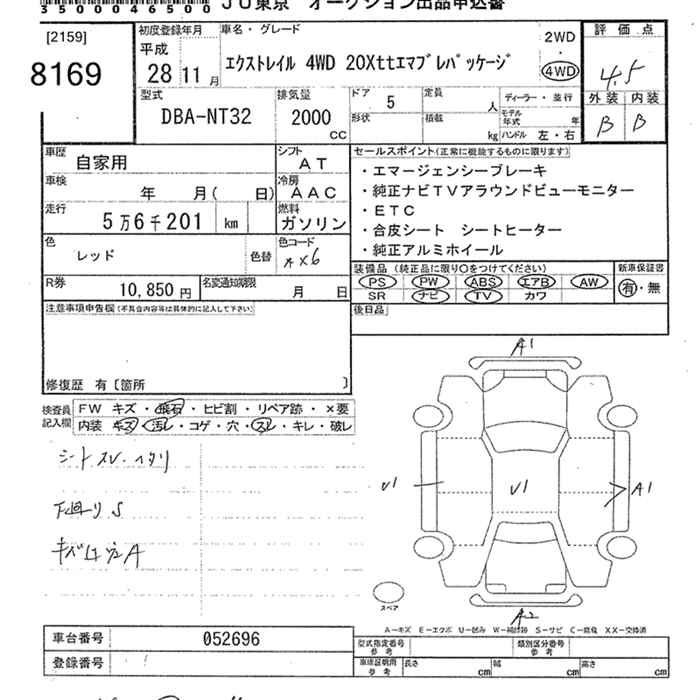 35000046500
JU東京 オークション出品申込書
[2159]
8169
初度登録年月
平成
28年11月
車名・グレード
エクストレイル 4WD 20Xttエマブレパッケージ
2WD
・
4WD
評価点
4.5
外装 内装
B B
型式
DBA-NT32
排気量
2000
CC
ドア 5
形状
定員 人
積載 kg
ディーラー・並行
モデル年式 年
ハンドル 左・右
車歴 自家用
シフト AT
車検 年 月( 日)
冷房 AAC
走行 5万6千201 km
燃料 ガソリン
色 レッド
色替
色コード
R券 10,850円
名変通知期限 月 日
セールスポイント(正常に機能するものに限ります)
・エマージェンシーブレーキ
・純正ナビTVアラウンドビューモニター
・ETC
・合皮シート シートヒーター
・純正アルミホイール
装備品(純正品に限り○をつけてください)
PS PW ABS エアB AW
SR ナビ TV カワ
新車保証書
有・無
後日品
注意事項申告欄(不具合内容等は具体的に記入して下さい)
修復歴 有〔箇所 〕
検査員記入欄
FW キズ・飛石・ヒビ割・リペア跡・×要
内装 キズ・汚レ・コゲ・穴・スレ・キレ・破レ
下回り S
A1
U1
U1
A1
A2
スペア
A−キズ E−エクボ U−凹み W−補修跡 S−サビ C−腐食 XX−交換済
車台番号 052696
登録番号
型式指定番号 参考
類別区分番号 参考
車庫証明用 参考
長さ cm
幅 cm
高さ cm